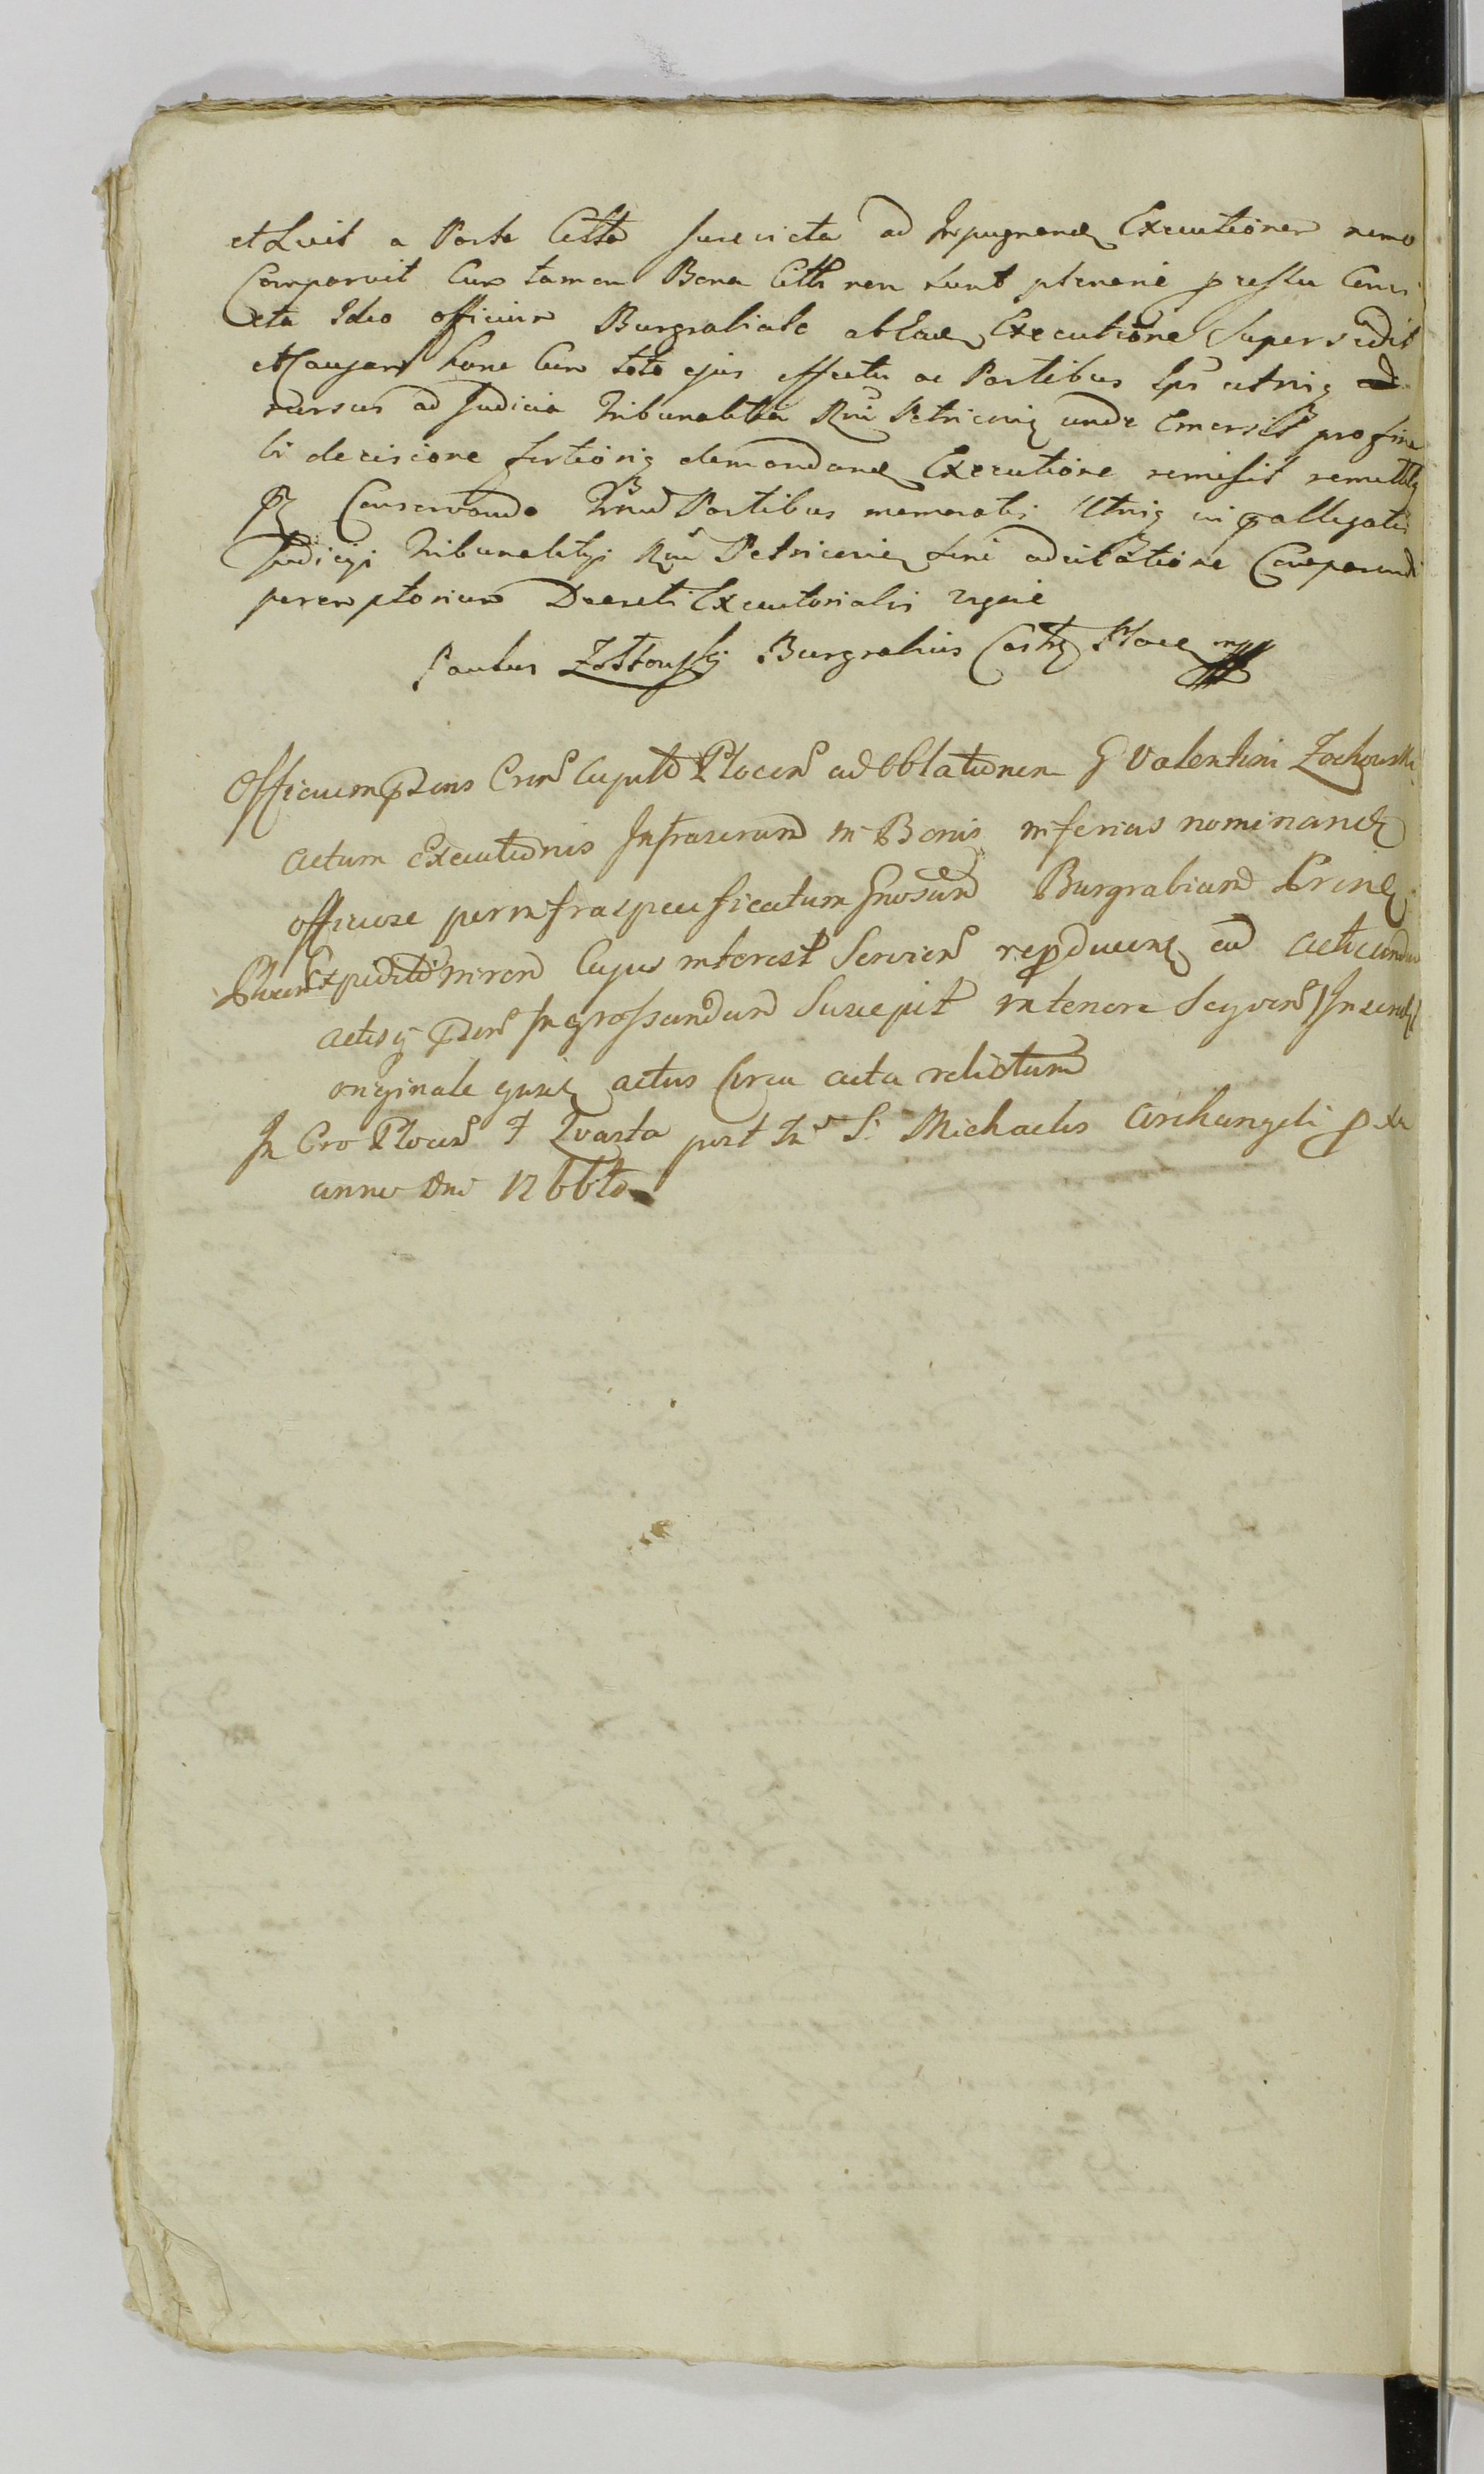 et Luit a Parte Citta jure victa ad Impugnand Executionem nemo
Comparuit Cum tamen Bona Citti non sunt plenarie p juste Convi
cta Ideo officium Burgrabiale ab Executione Supersedit
et Causam hanc Cum toto ejus effectu ac Partibus Ipsis utrisq
rursus ad Judicia Tribunalitia Rni Petricovien unde Emersit pro fina
li decisione fortiorisq demandand Executione remisit remittitq
Conservando Trnd Partibus memoratis Utrisq in pallegatis
Judicijs Tribunalitijs Rni Petricovien sine adcitatione Comparendi
peremptorium Decreti Executorialis vigore
Paulus Zołtowski Burgrabius Castri Ploce mpp
Officium psens Crense Capitle Plocen ad Oblationem G Valentini Zochowski
actum Executionis Infrascrum in Bonis inferius nominand
officiose per infraspecificatum Gnosum Burgrabium Crens
Plocen Expeditum rem Cujus interest Servien repducend ad acticandum
actisq psen Ingrossandum Suscepit in tenore Seqven Inserend
originale gusd actus Circa acta relictum
In Cro Plocen f Qvarta post fn S. Michaelis Archangeli pxa
anno Dni 1766to